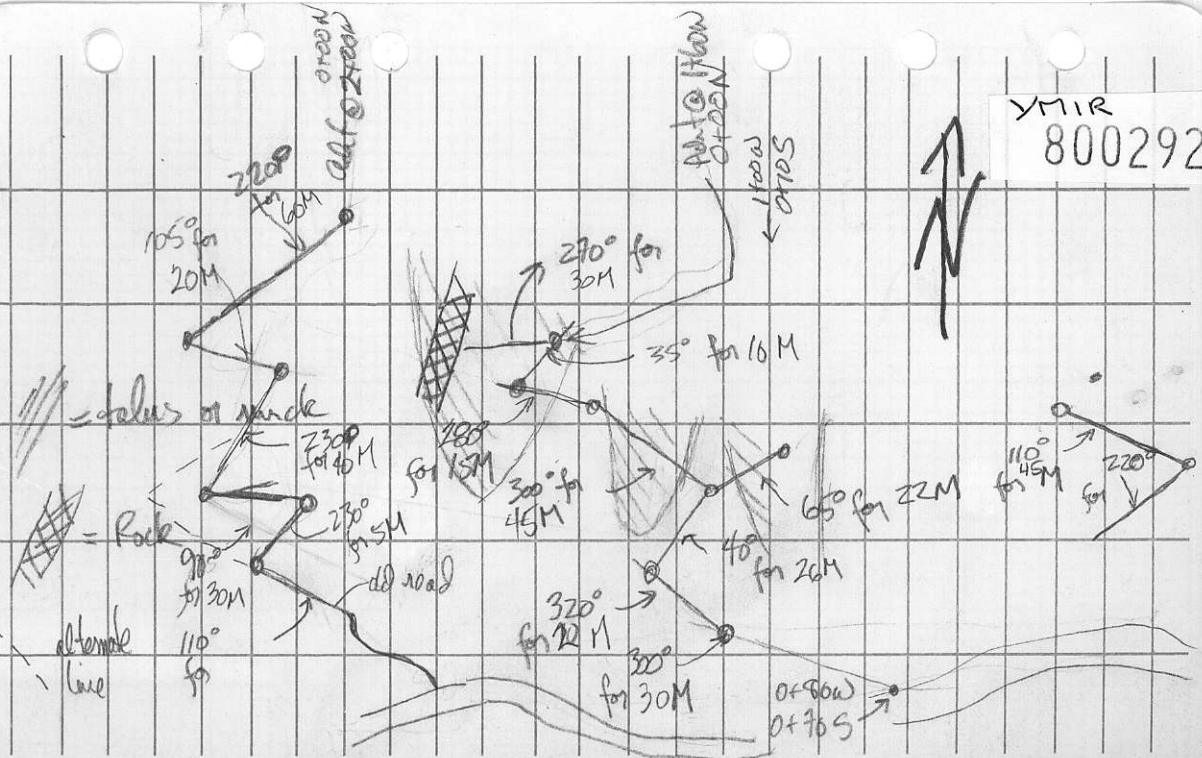 YMIR
800292
0+00N
adit @ 2+00W
Adit @ 1+60W
0+00N
1+00W
0+10S
N
220°
for
60M
105° for
20M
270° for
30M
35° for 10M
= talus or muck
230°
for 40M
280°
for 15M
300° for
45M
110°
for 45M
220°
for
65° for 22M
= Rock
230°
for 5M
90°
for 30M
40°
for 26M
old road
320°
for 22M
alternate
line
110°
for
300°
for 30M
0+80W
0+70S